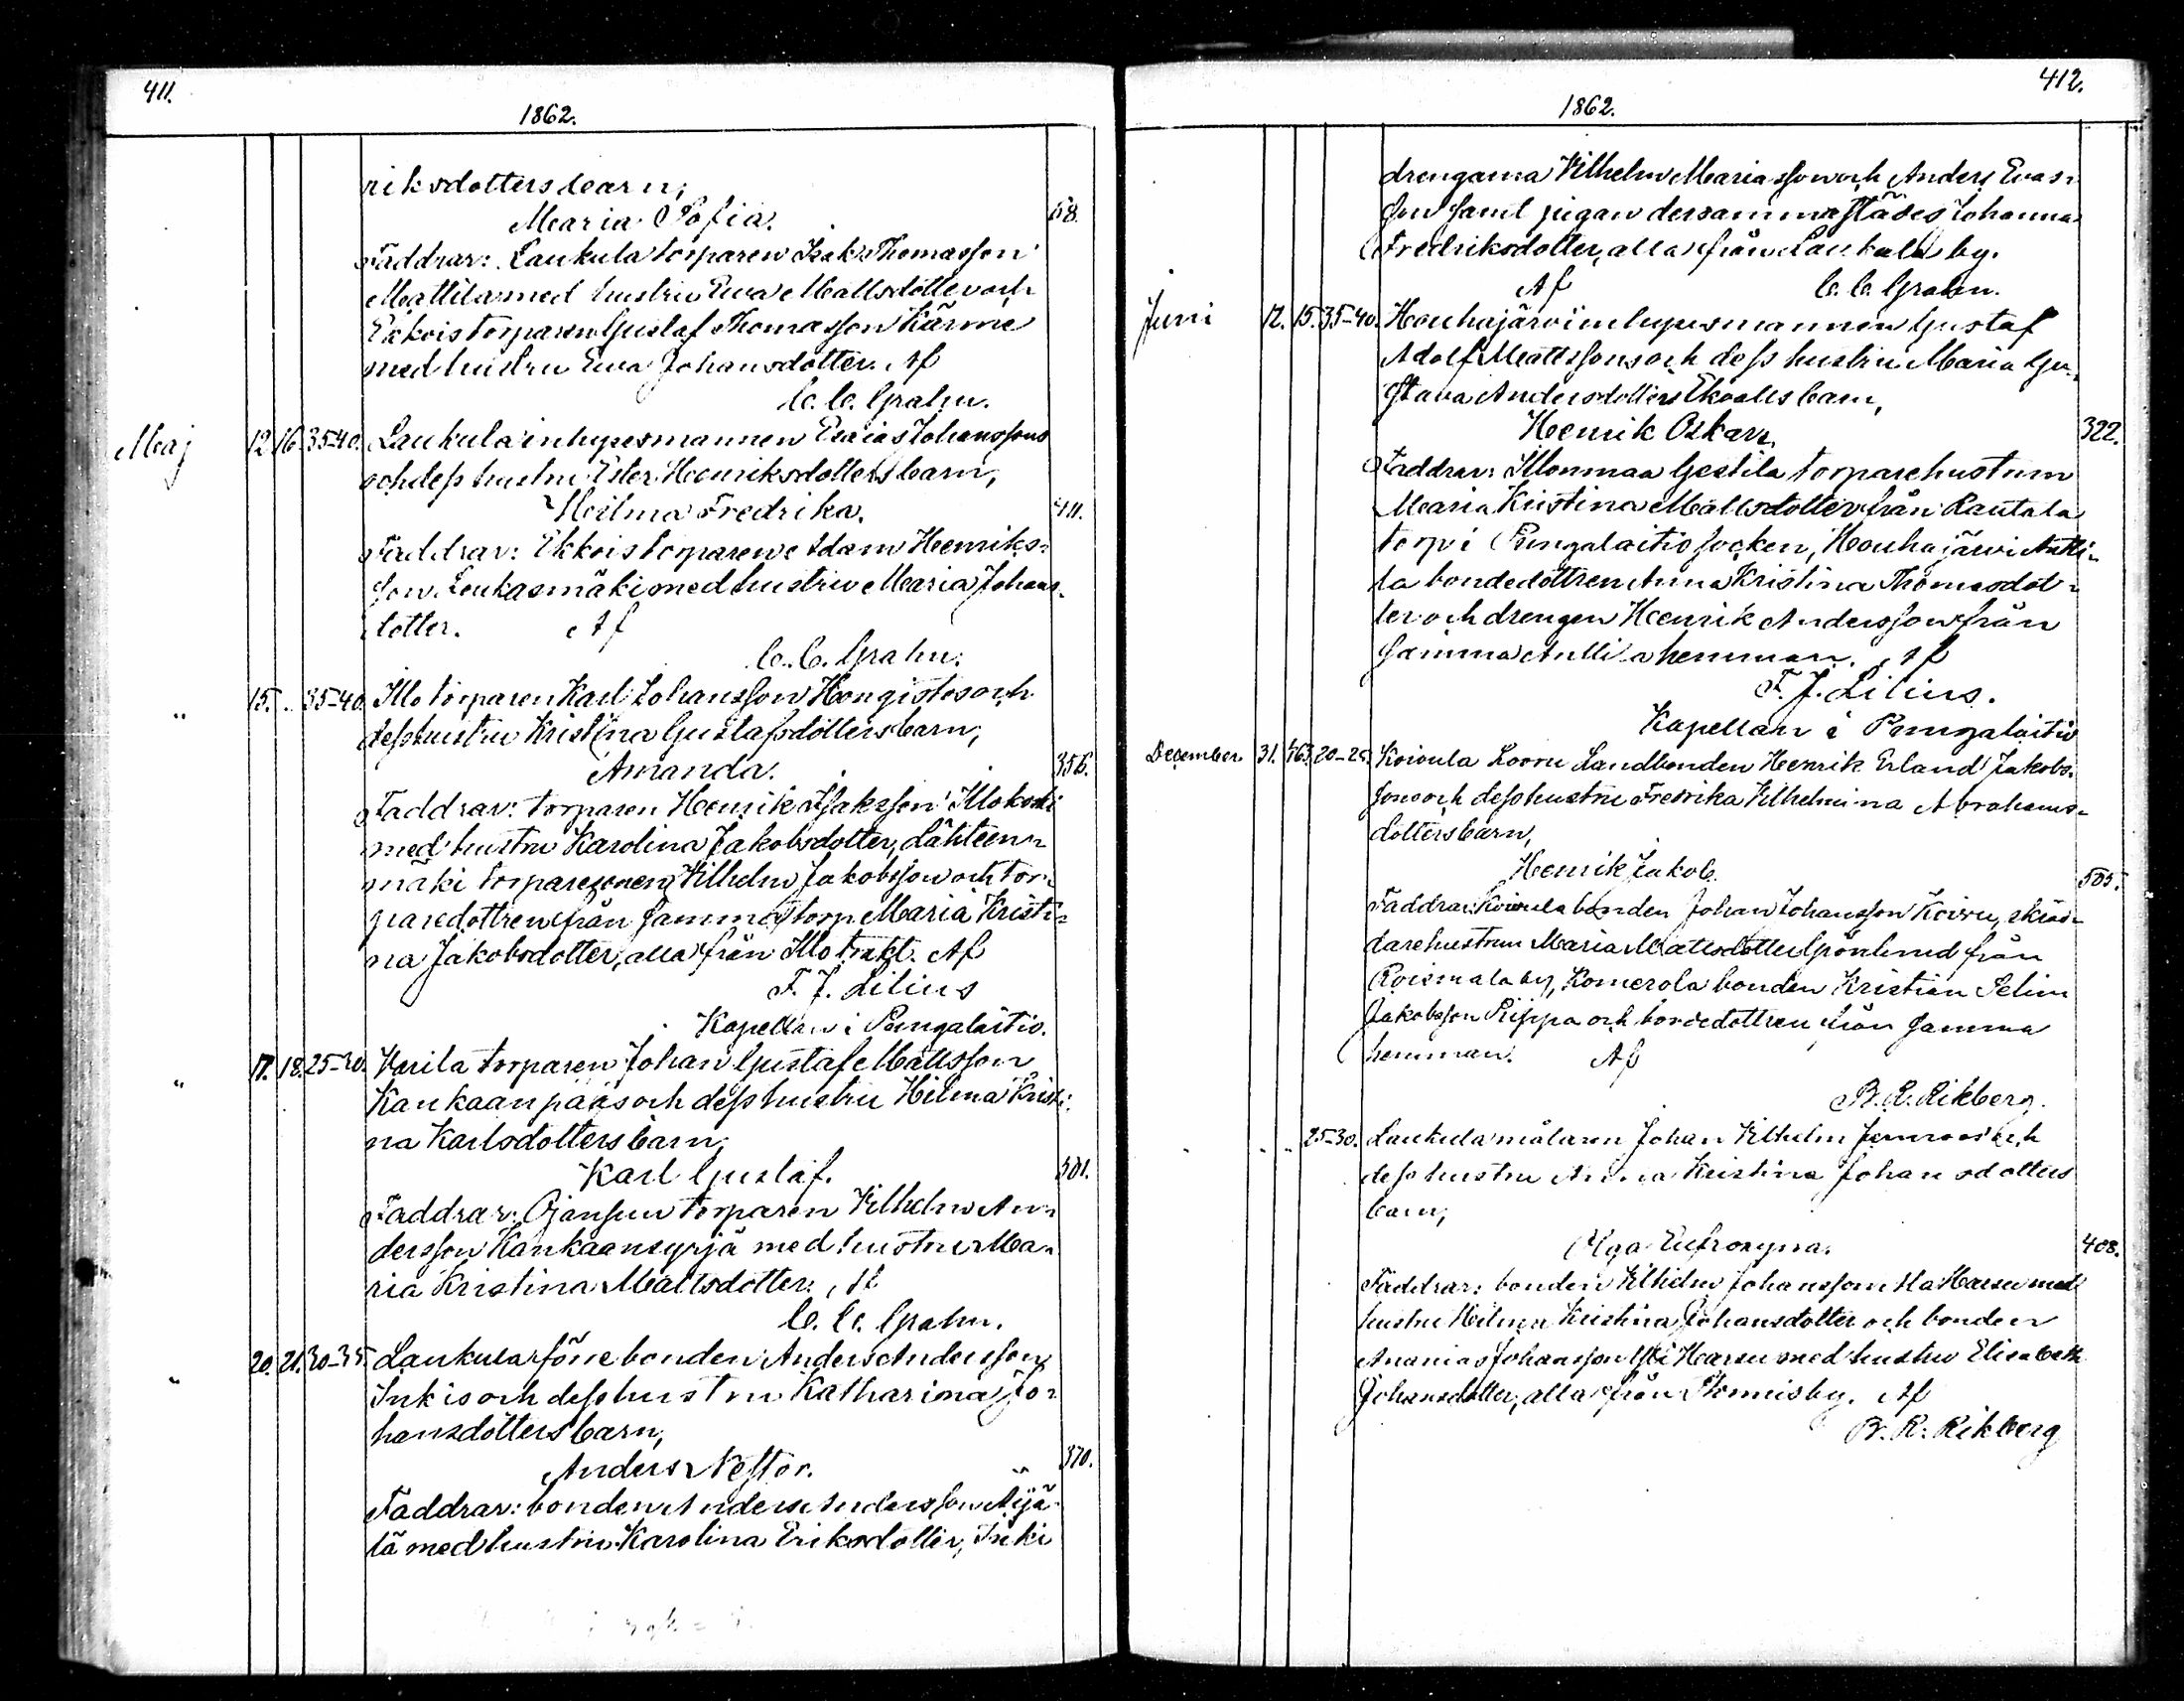 411.
1862.
riksdotters barn,
Maria Sofia. 68.
Faddrar: Laukula torparen Isak Thomasson
Mattila med hustru Eva Mattsdotter och
Ekkois torparen Gustaf Thomasson Kärme
med hustru Eva Johansdotter. Af
C. C. Grahn.
Maj 12. 16. 35-40. Laukula inhysesmannen Esaias Johanssons
och dess hustru Ester Henriksdotters barn,
Heilma Fredrika. 411.
Faddrar: Ekkois torparen Adam Henriks-
son Loukasmäki med hustru Maria Johans-
dotter. Af
C. C. Grahn.
" 15. . 35-40. Illo torparen Karl Johansson Hongistos och
dess hustru Kristina Gustafsdotters barn,
Amanda. 356.
Faddrar: torparen Henrik Isaksson Illokoski
med hustru Karolina Jakobsdotter, Lähteen-
mäki torparesonen Vilhelm Jakobsson och tor-
paredottren från samma torp Maria Kristi-
na Jakobsdotter, alla från Illo trakt. Af
F. J. Lilius
Kapellan i Pungalaitio.
" 17. 18. 25-30. Karila torparen Johan Gustaf Mattsson
Kankaanpääs och dess hustru Hilma Kristi-
na Karlsdotters barn,
Karl Gustaf. 501.
Faddrar: Ojansuu torparen Vilhelm An-
dersson Kankaansyrjä med hustru Ma-
ria Kristina Mattsdotter. Af
C. C. Grahn.
" 20. 21. 30-35. Laukula bonden Anders Andersson
Inkis och dess hustru Katharina Jo-
hansdotters barn,
Anders Nestor. 370.
Faddrar: bonden Anders Andersson Äijä-
lä med hustru Karolina Eriksdotter, Inki
412.
1862.
drengarna Vilhelm Mariasson och Anders Evas-
son samt pigan dersammastädes Johanna
Fredriksdotter, alla från Laukula by.
Af C. C. Grahn.
Juni 12. 15. 35-40. Houhajärvi inhysesmannen Gustaf
Adolf Mattssons och dess hustru Maria Gu-
stava Andersdotters Ekvalls barn,
Henrik Oskar. 322.
Faddrar: Illonmaa Gestila torparehustrun
Maria Kristina Mattsdotter från Rautala
torp i Pungalaitio socken, Houhajärvi Antti-
la bondedottren Anna Kristina Thomasdot-
ter och drengen Henrik Andersson från
samma Anttila hemman. Af
F. J. Lilius.
Kapellan i Pungalaitio
December. 31. 763. 20-25. Koivula Looru Landbonden Henrik Erland Jakobs-
sons och dess hustru Fredrika Vilhelmina Abrahams-
dotters barn,
Henrik Jakob. 505.
Faddrar: Koivula bonden Johan Johansson Koivu, skräd-
darehustrun Maria Mattsdotter Grönlund från
Roismala by, Komerola bonden Kristian Selim
Jakobsson Piippa och bondedottren från samma
hemman. Af
B. R. Rikberg.
" " " 25-30. Laukula målaren Johan Vilhelm och
dess hustru Anna Kristina Johansdotters
barn,
Olga Eufrosyna. 408.
Faddrar: bonden Vilhelm Johansson Ala Harsu med
hustru Hilma Kristina Johansdotter och bonden
Ananias Johansson Yli Harsu med hustru Elisabeth
Johansdotter, alla från by. Af
B. R. Rikberg